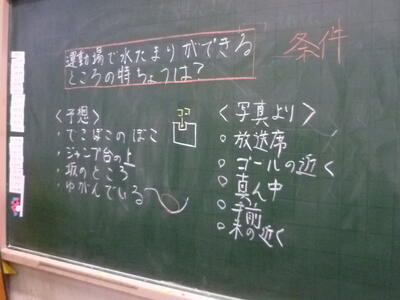 運動場で水たまりができる
ところの特ちょうは？
条件
＜予想＞
○でこぼこのぼこ
○ジャンプ台の上
○坂のところ
○ゆがんでいる
ココ
＜写真より＞
○放送席
○ゴールの近く
○真ん中
○手前
○木の近く